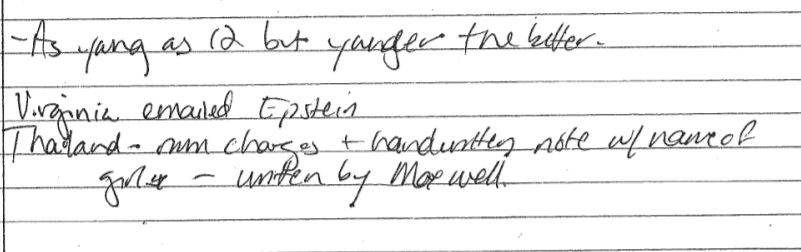 - As young as 12 but younger the better.
Virginia emailed Epstein
Thailand - rum charges + handwritten note w/ name of
girl - written by Maxwell.